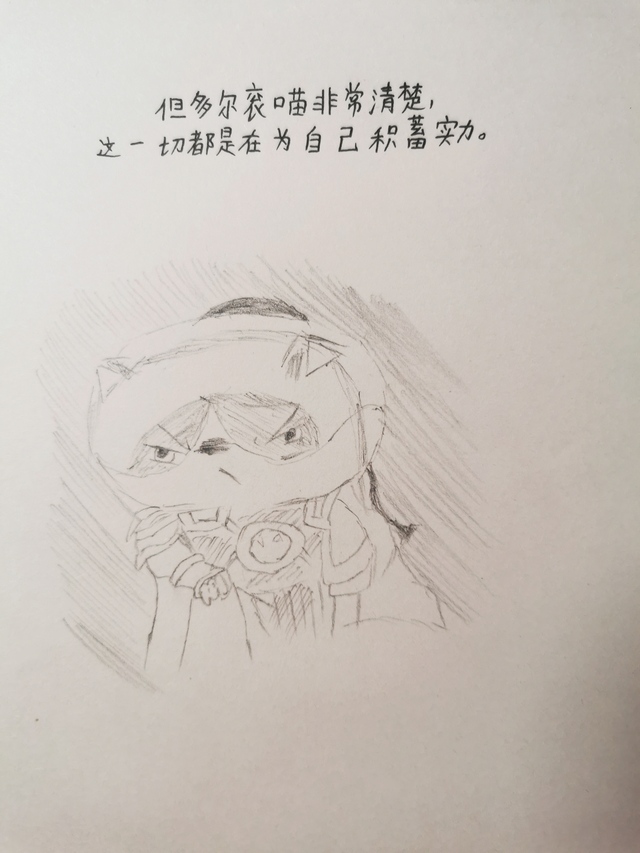 但多尔衮喵非常清楚,
这一切都是在为自己积蓄实力。